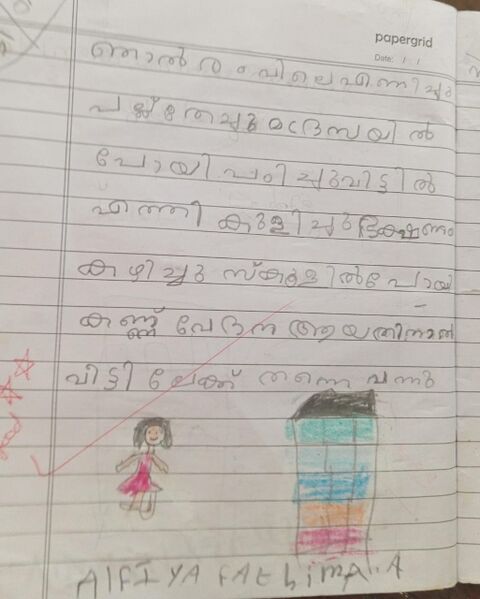 papergrid
Date: / /
ഞാൽ രാവിലെ എണിച്ചു
പല്ല് തേച്ചു മദ്രസയിൽ
പോയി പഠിച്ചു വീട്ടിൽ
എത്തി കുളിച്ചു ഭക്ഷണം
കഴിച്ചു സ്കുളിൽ പോയി
കണ്ണ് വേദന ആയതിനാൽ
വിട്ടിലേക്ക് തന്നെ വന്നു
good
AlFIYA FAthimA.A